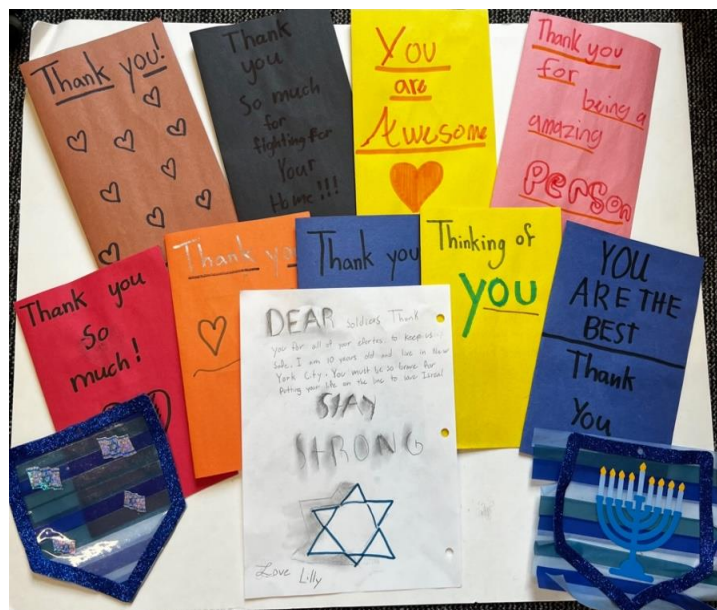 Thank you!
Thank
you
So much
for
fighting for
Your
Home!!!
You
are
Awesome
Thank you
for
being a
amazing
PERSON
Thank you
So
much!
Thank yo
Thank you
Thinking of
YOU
YOU
ARE THE
BEST
Thank
You
DEAR soldiers Thank
you for all of your efortes to keep us
safe. I am 10 years old and live in New
York City. You must be so brave for
Putting your life on the line to save Isreal
STAY
STRONG
Love Lilly